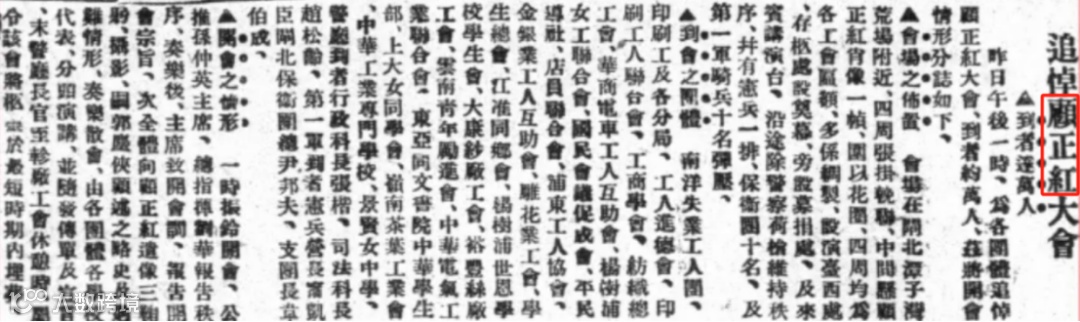 追悼顧正紅大會
▲到者逹萬人
昨日午後一時、爲各團體追悼
顧正紅大會、到者約萬人、茲將開會
情形分誌如下、
▲會場之佈置　會場在閘北潭子灣
荒場附近、四周張掛輓聯、中間懸顧
正紅肖像一幀、圍以花圈、四周均爲
各工會匾額、多係綢製、設演臺西處
、存柩處設奠幕、旁設募捐處、及來
賓講演台、沿途除警察荷槍維持秩
序、幷有憲兵一排、保衛團十名、及
第一軍騎兵十名彈壓、
▲到會之團體　南洋失業工人團、
印刷工及各分局、工人進德會、印
刷工人聯合會、工商學會、紡織總
工會、華商電車工人互助會、楊樹浦
女工聯合會、國民會議促成會、平民
導社、店員聯合會、浦東工人協會、
金銀業工人互助會、雕花業工會、學
生總會、江淮同鄉會、楊樹浦世恩學
校學生會、大康紗廠工會、裕豐絲廠
工會、雲南靑年勵進會、中華電氣工
業聯合會、東亞同文書院中華學生
部、上大女同學會、嶺南茶葉工業會
、中華工業專門學校、景賢女中學、
警廳到者行政科長張楷、司法科長
趙松齡、第一軍到者憲兵營長甯凱
臣、閘北保衛團總尹邦夫、支團長章
伯成、
▲開會之情形　一時振鈴開會、公
推孫仲英主席、總指揮劉華報告秩
序、奏樂後、主席致開會詞、報告開
會宗旨、次全體向顧正紅遺像三鞠
躬、攝影、嗣郭塵俠顧述之略史
難情形、奏樂散會、由各團體各學
代表、分頭演講、並隨發傳單及宣
、末警廳長官至紗廠工會休憩
令該會將柩　於最短時期內埋葬
大數跨境